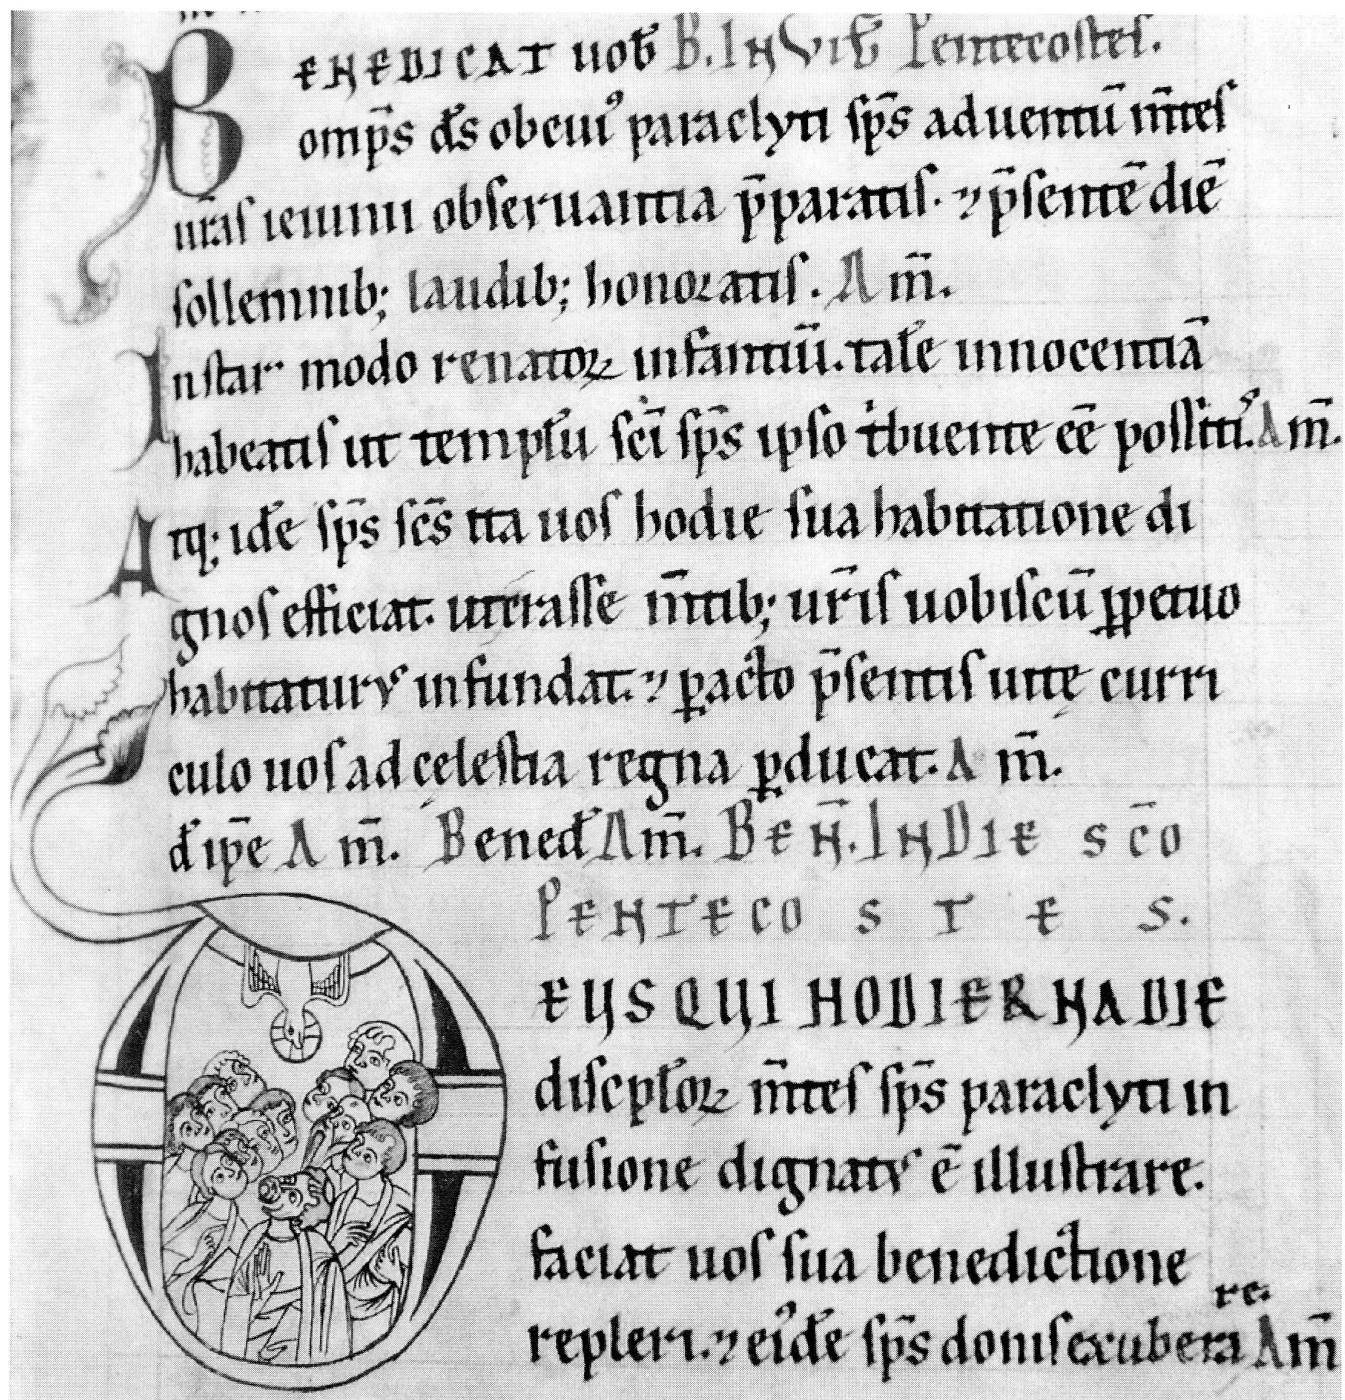 BENEDICAT uob̄ B. IN Vig̅ Pentecostes.
omp̄s d̄s ob cui᾽ paraclyti sp̄s aduentū m̄tes
ur̄as ieiunii obseruantia p̄paratis. ⁊ p̄sentē diē
sollemnib; laudib; honoratis. Am̄.
Instar modo renatoꝝ infantiū. tałe innocentiā
habeatis ut templ̄u sc̄i sp̄s ipso t̍buente eē possitis᾽. Am̄.
Atq; id̄e sp̄s sc̄s ita uos hodie sua habitatione di
gnos efficiat. ut cras se m̄tib; ur̄is uobiscū ꝑpetuo
habitatur᾽ infundat. ⁊ ꝑacto p̄sentis uitę curri
culo uos ad cęlestia regna ꝑducat. Am̄.
q̄d ip̄e Am̄. Bened̄ Am̄. BEN̄. IN DIE SC̄O
PENTECOSTES.
DEUS QUI HODIERNA DIE
discipl̄oꝝ m̄tes sp̄s paraclyti in
fusione dignat᾽ ē illustrare.
faciat uos sua benedictione
re.
repleri. ⁊ ei᾽d̄e sp̄s donis exubera Am̄